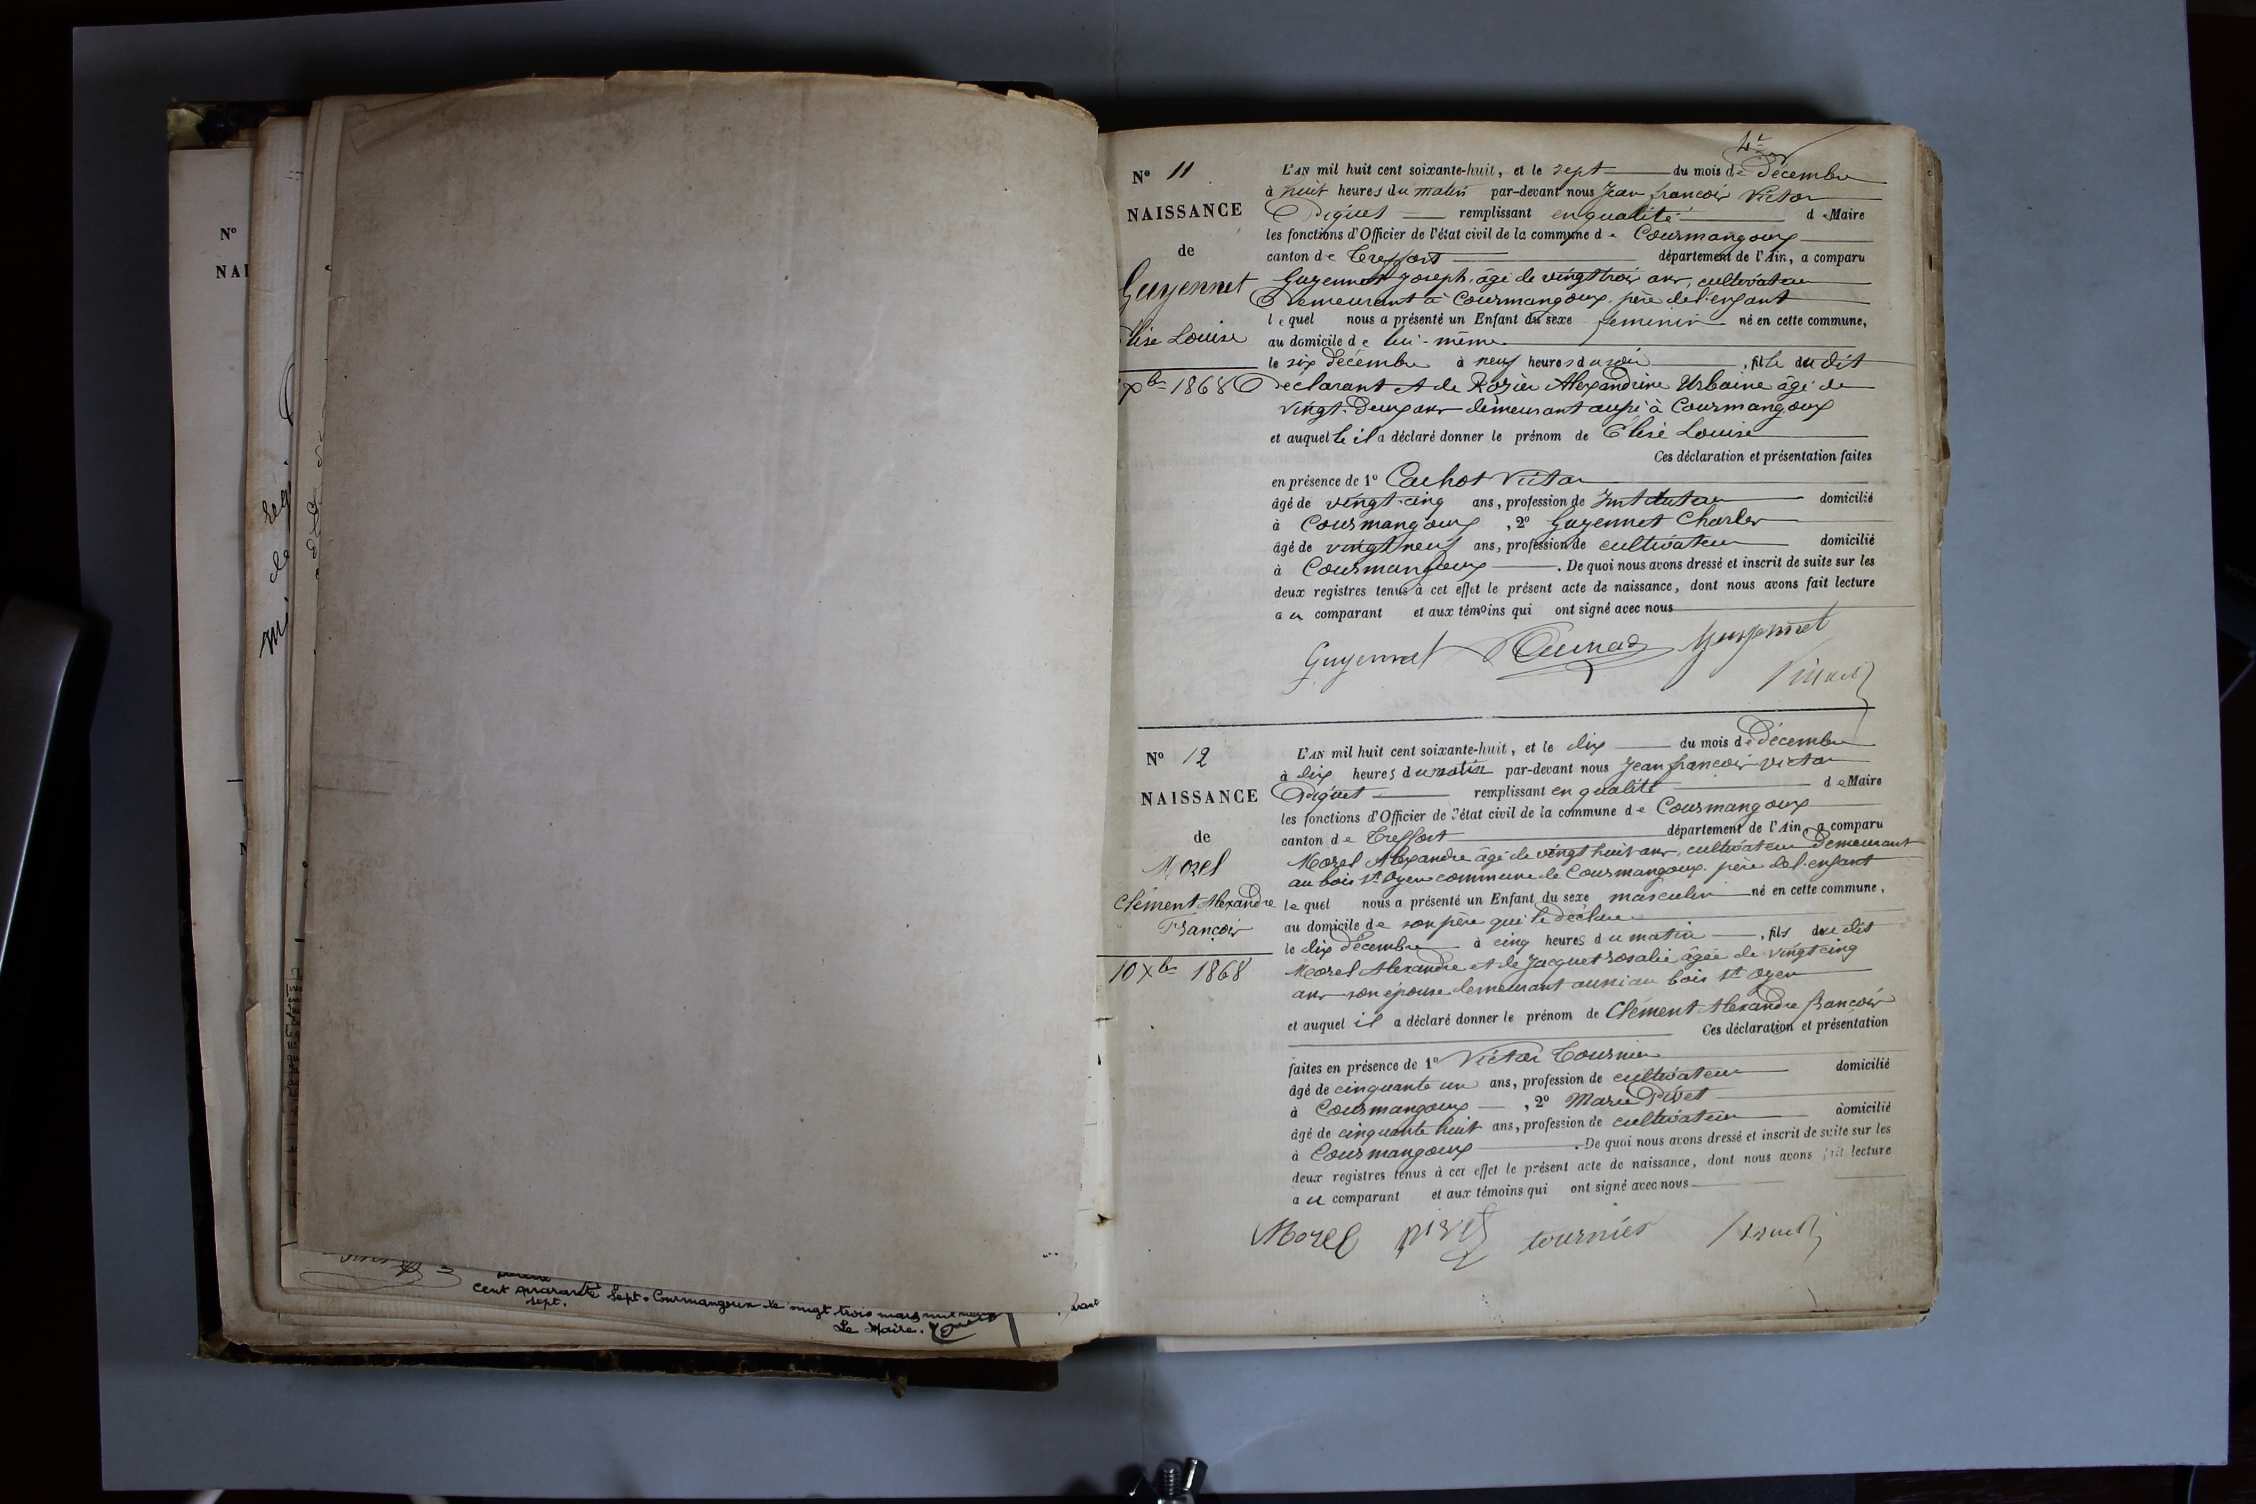 N°
NAI
N° 11
NAISSANCE
de
Guyennet
Elise Louise
Xbre 1868
L'AN mil huit cent soixante-huit, et le sept du mois de décembre
à huit heures du matin par-devant nous Jean françois Victor
Piquet remplissant en qualité de Maire
les fonctions d'Officier de l'état civil de la commune de Courmangoux
canton de Treffort département de l'Ain, a comparu
Guyennet Joseph âgé de vingt trois ans, cultivateur
Demeurant à Courmangoux père de l'enfant
lequel nous a présenté un Enfant du sexe feminin né en cette commune,
au domicile de lui-même
le six décembre à neuf heures du soir, fille du dit
Déclarant et de Rozier Alexandrine Urbaine âgé de
vingt-deux ans demeurant aussi à Courmangoux
et auquelle il a déclaré donner le prénom de Elise Louise
Ces déclaration et présentation faites
en présence de 1° Cachot Victor
âgé de vingt-cinq ans, profession de Instituteur domicilié
à Courmangoux, 2° Guyennet Charles
âgé de vingt neuf ans, profession de cultivateur domicilié
à Courmangoux. De quoi nous avons dressé et inscrit de suite sur les
deux registres tenus à cet effet le présent acte de naissance, dont nous avons fait lecture
au comparant et aux témoins qui ont signé avec nous
Guyennet Guyennet
N° 12
NAISSANCE
de
Morel
Clément Alexandre
François
10 Xbre 1868
L'AN mil huit cent soixante-huit, et le dix du mois de décembre
à dix heures du matin par-devant nous Jean françois victor
Piquet remplissant en qualité de Maire
les fonctions d'Officier de l'état civil de la commune de Courmangoux
canton de Treffort département de l'Ain, a comparu
Morel Alexandre âgé de vingt huit ans, cultivateur Demeurant
au bois St Oyen commune de Courmangoux père de l'enfant
lequel nous a présenté un Enfant du sexe masculin né en cette commune,
au domicile de son père qui le déclare
le dix décembre à cinq heures du matin, fils du dit
Morel Alexandre et de Jacquet rosalie âgée de vingt cinq
ans son épouse demeurant aussi au bois St Oyen
et auquel il a déclaré donner le prénom de Clément Alexandre françois
Ces déclaration et présentation
faites en présence de 1° Victor Tournier
âgé de cinquante un ans, profession de cultivateur domicilié
à Courmangoux, 2° Marie Pivet
âgé de cinquante huit ans, profession de cultivateur domicilié
à Courmangoux. De quoi nous avons dressé et inscrit de suite sur les
deux registres tenus à cet effet le présent acte de naissance, dont nous avons fait lecture
au comparant et aux témoins qui ont signé avec nous
Morel pivet tournier
cent quarante sept. Courmangoux le vingt trois mars mil neuf
sept.
Le Maire.